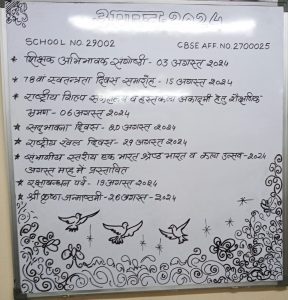 अगस्त २०२४
SCHOOL NO. 29002 CBSE AFF NO. 2700025
★ शिक्षक अभिभावक संगोष्ठी - 03 अगस्त 2024
★ 78वां स्वतन्त्रता दिवस समारोह - 15 अगस्त 2024
★ राष्ट्रीय शिल्प संग्रहालय व हस्तकला अकादमी हेतु शैक्षणिक
भ्रमण - 06 अगस्त 2024
★ सद्भावना दिवस - 20 अगस्त 2024
★ राष्ट्रीय खेल दिवस - 29 अगस्त 2024
★ संभागीय स्तरीय एक भारत श्रेष्ठ भारत व कला उत्सव - 2024
अगस्त माह में प्रस्तावित
★ रक्षाबन्धन पर्व - 19 अगस्त 2024
★ श्री कृष्ण जन्माष्टमी - 26 अगस्त - 2024